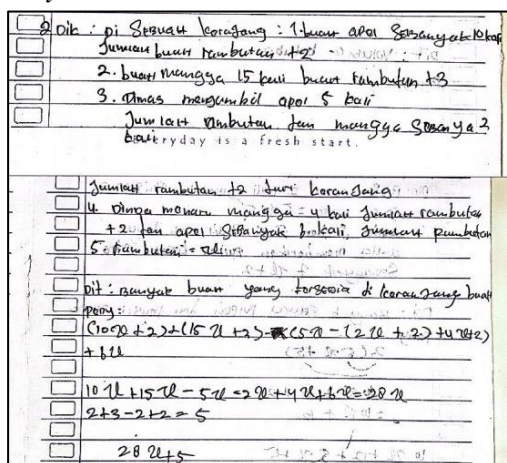 2 Dik : Di Sebuah keranjang : 1. buah apel sebanyak 10 kali
Jumlah buah rambutan +2
2. buah mangga 15 kali buah rambutan +3
3. Dimas mengambil apel 5 kali
Jumlah rambutan dan mangga 2
kali
everyday is a fresh start.
Jumlah rambutan +2 dari keranjang
4. mangga 4 kali Jumlah rambutan
+2 dan apel sebanyak 6 kali Jumlah rambutan
5.
Dit : Banyak buah yang tersedia di keranjang buah
(10x + 2) + (15x + 3) - (5x - (2x + 2) + 4x+2)
+ 6x
10x + 15x - 5x - 2x + 4x + 6x = 28x
2+3-2+2 = 5
28x+5